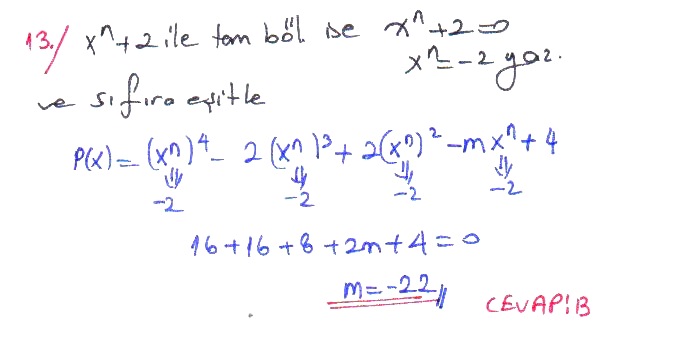 13./ xⁿ+2 ile tam böl. ise xⁿ+2=0
xⁿ=-2 yaz.
ve sıfıra eşitle
P(x)=(xⁿ)⁴-2(xⁿ)³+2(xⁿ)²-mxⁿ+4
⇓ ⇓ ⇓ ⇓
-2 -2 -2 -2
16+16+8+2m+4=0
m=-22//
CEVAP:B